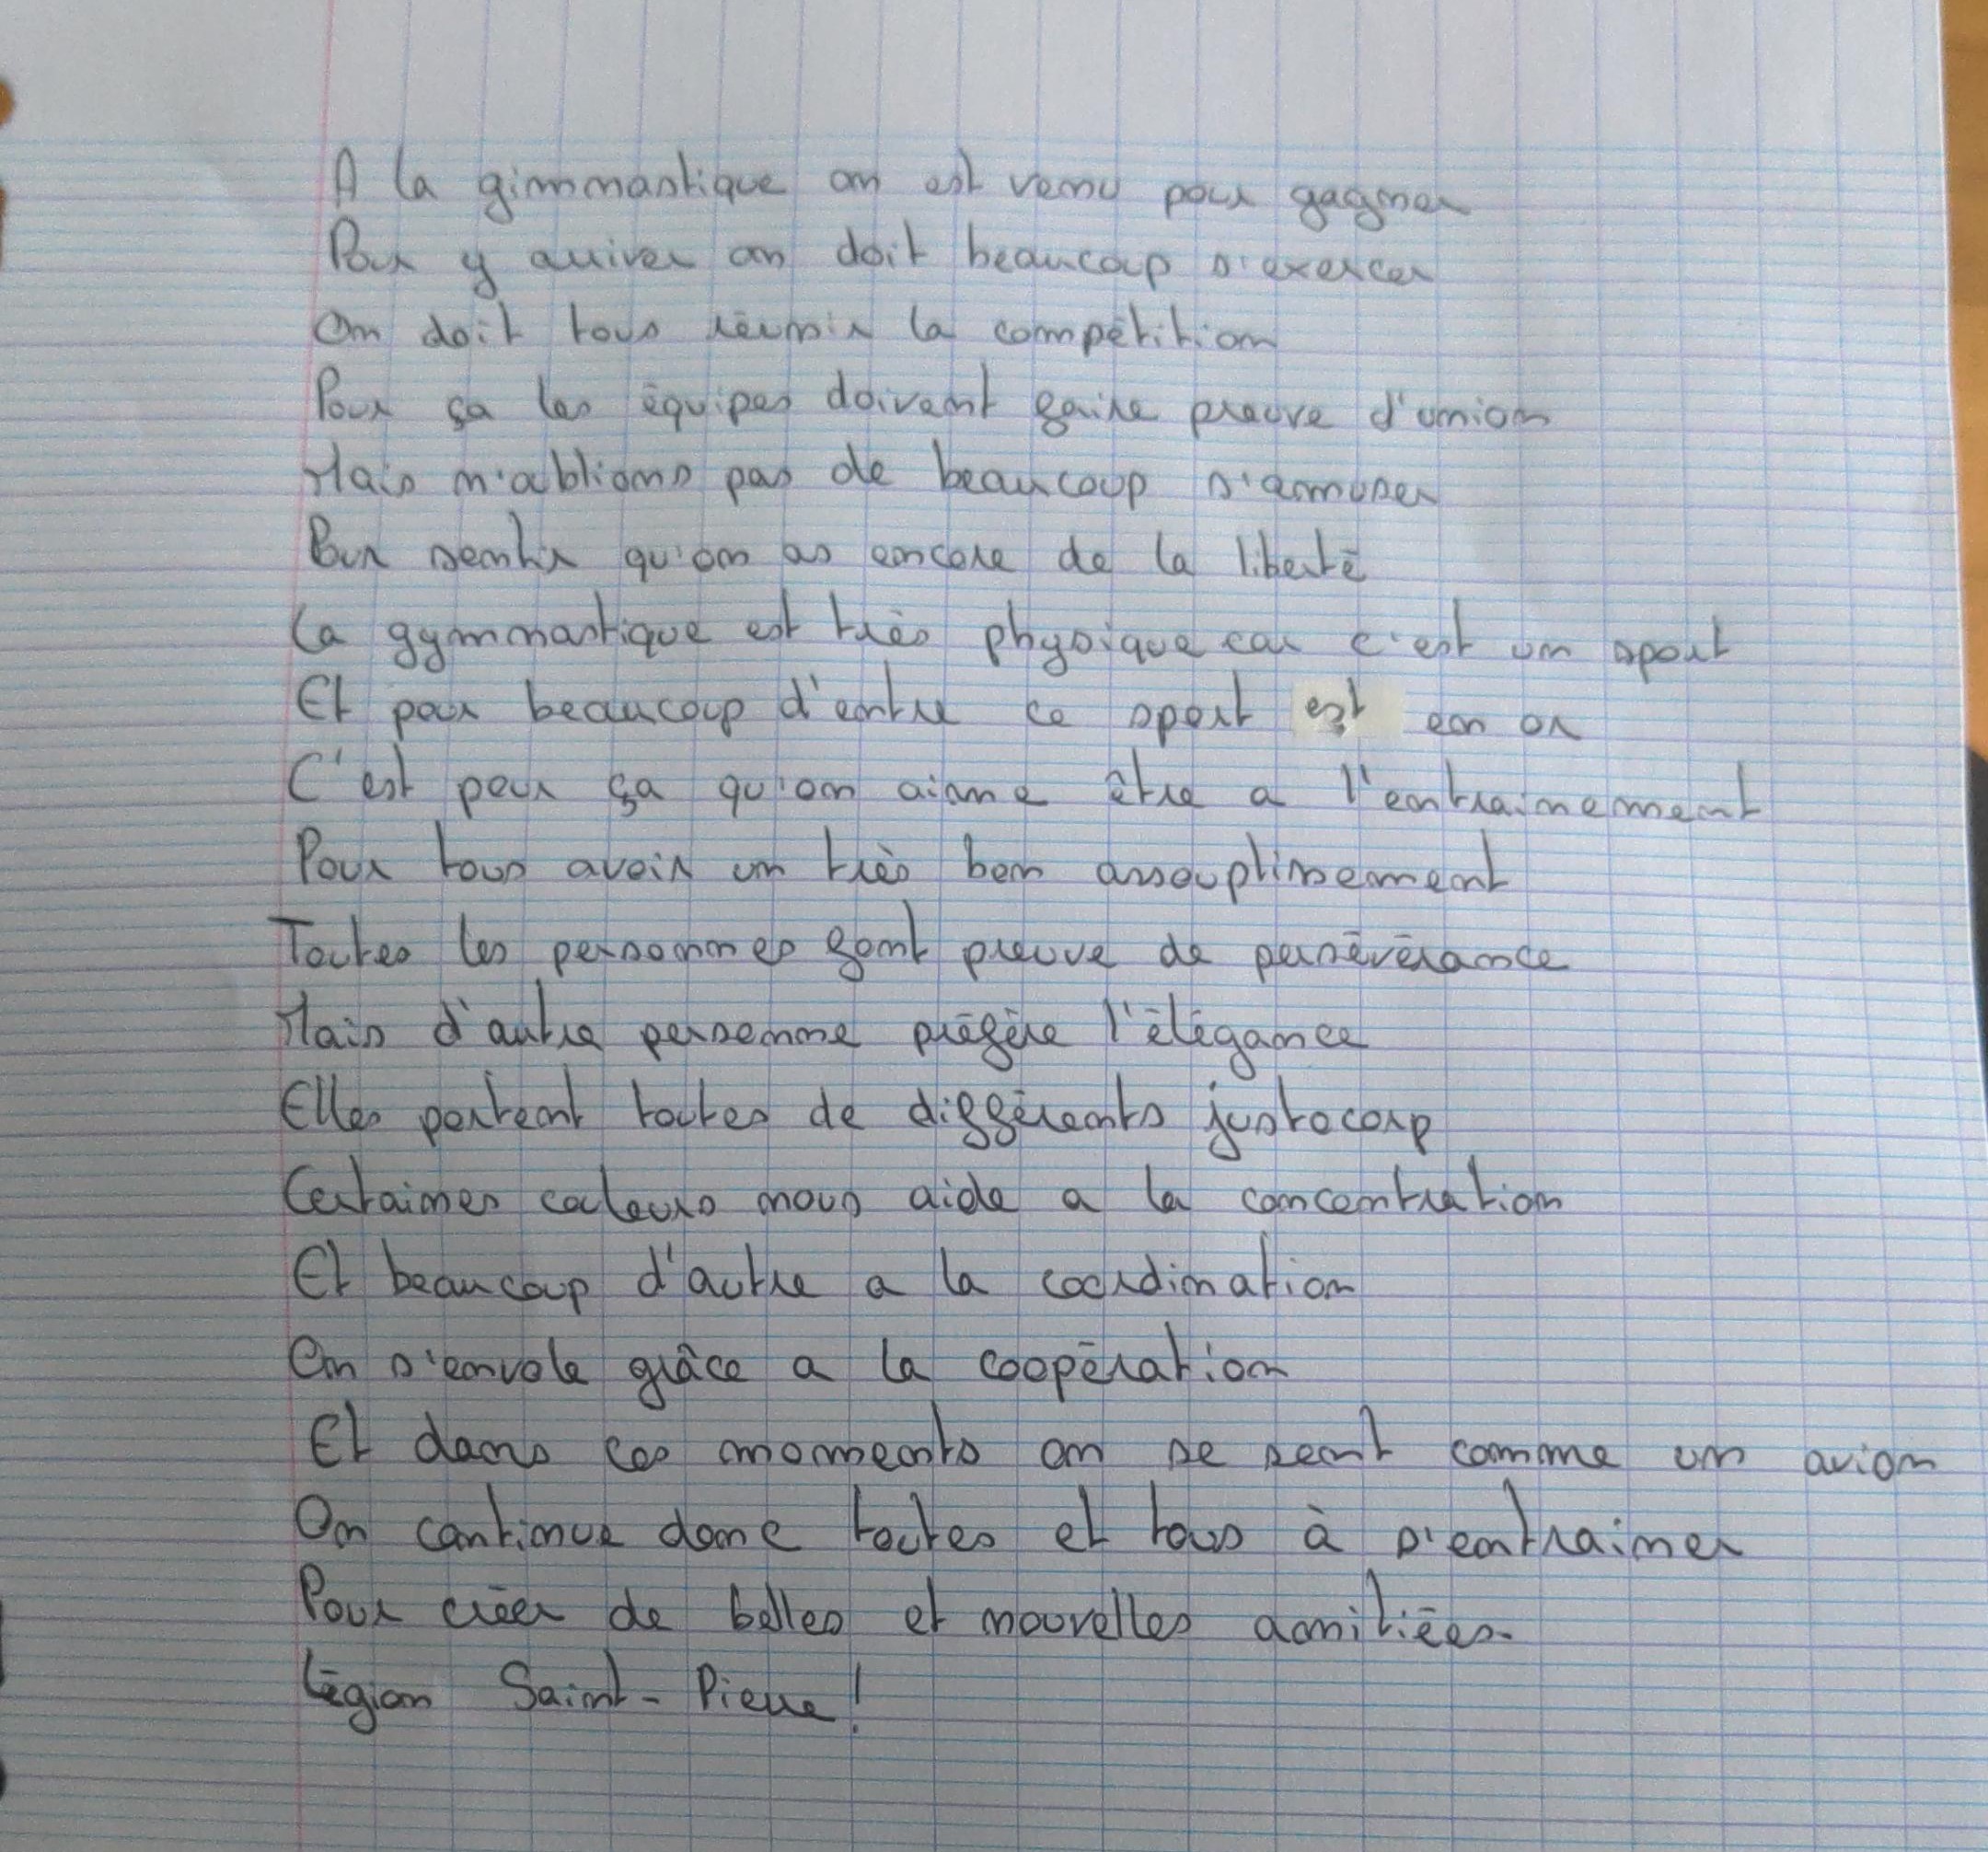 A la gimmnastique on est venu pour gagner
Pour y arriver on doit beaucoup s'exercer
On doit tous réunir la compétition
Pour ça les équipes doivent faire preuve d'union
Mais n'oublions pas de beaucoup s'amuser
Pour sentir qu'on as encore de la liberté
La gymnastique est très physique car c'est un sport
Et pour beaucoup d'entre ce sport est en or
C'est pour ça qu'on aime être a l'entrainement
Pour tous avoir un très bon assouplissement
Toutes les personnes font preuve de persévérance
Mais d'autre personne préfère l'élégance
Elles portent toutes de différents justocorp
Certaines couleurs nous aide a la concentration
Et beaucoup d'autre a la coordination
On s'envole grâce a la coopération
Et dans ces moments on se sent comme un avion
On continue donc toutes et tous à s'entrainer
Pour créer de belles et nouvelles amitiées.
Légion Saint-Pierre !